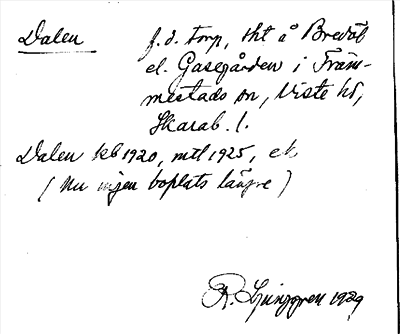 Dalen f. d. torp, tht å Bredöl
el. Gasegården i Främ-
mestads sn, Viste hd,
Skarab. l.
Dalen kb 1920, mtl 1925, ek
(Nu ingen boplats längre)
R. Ljunggren 1929